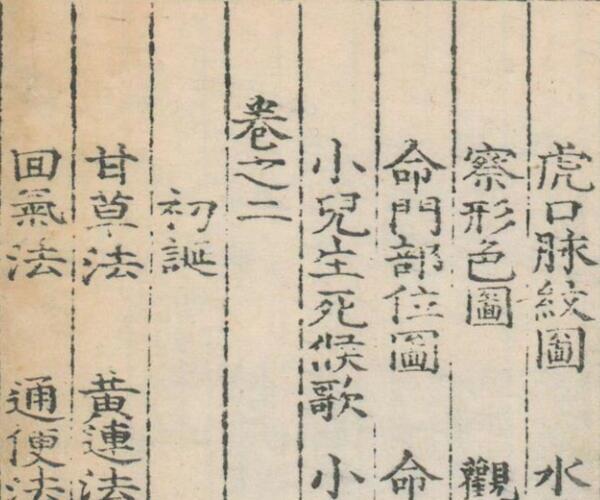 虎口脉紋圖 水
察形色圖 觀
命門部位圖 命
小兒生死候歌 小
卷之二
初誕
甘草法 黃連法
回氣法 通便法